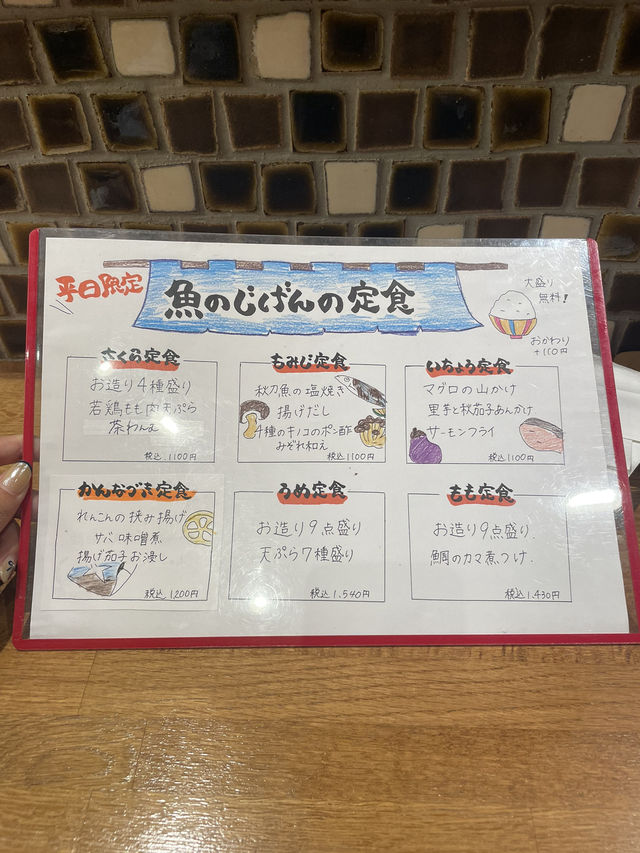 平日限定
魚のじげんの定食
大盛り
無料!
おかわり
+110円
さくら定食
お造り4種盛り
若鶏もも肉天ぷら
茶わんむし
税込1100円
もみじ定食
秋刀魚の塩焼き
揚げだし
4種のキノコのポン酢
みぞれ和え
税込1100円
いちょう定食
マグロの山かけ
里芋と秋茄子あんかけ
サーモンフライ
税込1100円
かんなづき定食
れんこんの挟み揚げ
サバ味噌煮
揚げ茄子お浸し
税込1,200円
うめ定食
お造り9点盛り
天ぷら7種盛り
税込1,540円
もも定食
お造り9点盛り.
鯛のカマ煮つけ.
税込1,430円